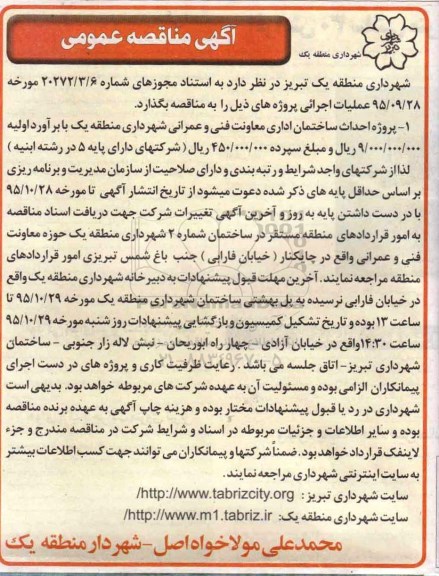 آگهی مناقصه عمومی
شهرداری منطقه یک
شهرداری منطقه یک تبریز در نظر دارد به استناد مجوزهای شماره ۲۰۲۷۲/۳/۶ مورخه
۹۵/۰۹/۲۸ عملیات اجرائی پروژه های ذیل را به مناقصه بگذارد.
۱- پروژه احداث ساختمان اداری معاونت فنی و عمرانی شهرداری منطقه یک با برآورد اولیه
۹/۰۰۰/۰۰۰/۰۰۰ ریال و مبلغ سپرده ۴۵۰/۰۰۰/۰۰۰ ریال ( شرکتهای دارای پایه ۵ در رشته ابنیه )
لذا از شرکتهای واجد شرایط و رتبه بندی و دارای صلاحیت از سازمان مدیریت و برنامه ریزی
بر اساس حداقل پایه های ذکر شده دعوت میشود از تاریخ انتشار آگهی تا مورخه ۹۵/۱۰/۲۸
با در دست داشتن پایه به روز و آخرین آگهی تغییرات شرکت جهت دریافت اسناد مناقصه
به امور قراردادهای منطقه مستقر در ساختمان شماره ۲ شهرداری منطقه یک حوزه معاونت
فنی و عمرانی واقع در چایکنار ( خیابان فارابی ) جنب باغ شمس تبریزی امور قراردادهای
منطقه مراجعه نمایند. آخرین مهلت قبول پیشنهادات به دبیرخانه شهرداری منطقه یک واقع
در خیابان فارابی نرسیده به پل بهشتی ساختمان شهرداری منطقه یک مورخه ۹۵/۱۰/۲۹ تا
ساعت ۱۳ بوده و تاریخ تشکیل کمیسیون و بازگشایی پیشنهادات روز شنبه مورخه ۹۵/۱۰/۲۹
ساعت ۱۴:۳۰ واقع در خیابان آزادی - چهار راه ابوریحان - نبش لاله زار جنوبی - ساختمان
شهرداری تبریز - اتاق جلسه می باشد . رعایت ظرفیت کاری و پروژه های در دست اجرای
پیمانکاران الزامی بوده و مسئولیت آن به عهده شرکت های مربوطه خواهد بود. بدیهی است
شهرداری در رد یا قبول پیشنهادات مختار بوده و هزینه چاپ آگهی به عهده برنده مناقصه
بوده و سایر اطلاعات و جزئیات مربوطه در اسناد و شرایط شرکت در مناقصه مندرج و جزء
لاینفک قرارداد خواهد بود. ضمناً شرکتها و پیمانکاران می توانند جهت کسب اطلاعات بیشتر
به سایت اینترنتی شهرداری مراجعه نمایند.
سایت شهرداری تبریز : http://www.tabrizcity.org/
سایت شهرداری منطقه یک: http://www.m1.tabriz.ir/
محمدعلی مولاخواه اصل - شهردار منطقه یک